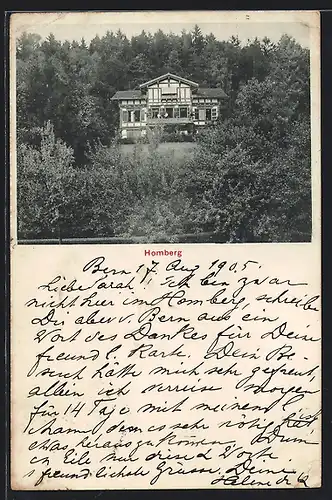 Homberg
Bern 17. Aug 1905.
Liebe Sarah! Ich bin zwar
nicht hier im Homberg, schreibe
Dir aber v. Bern aus ein
Wort des Dankes für Deine
freundl. Karte. Dein Be-
such hätte mich sehr gefreut,
allein ich verreise morgen
für 14 Tage mit meinem
dem es sehr nötig hat,
etwas herauszukommen. Drum
in Eile nur diese 2 Worte.
freundlichste Grüsse. Deine